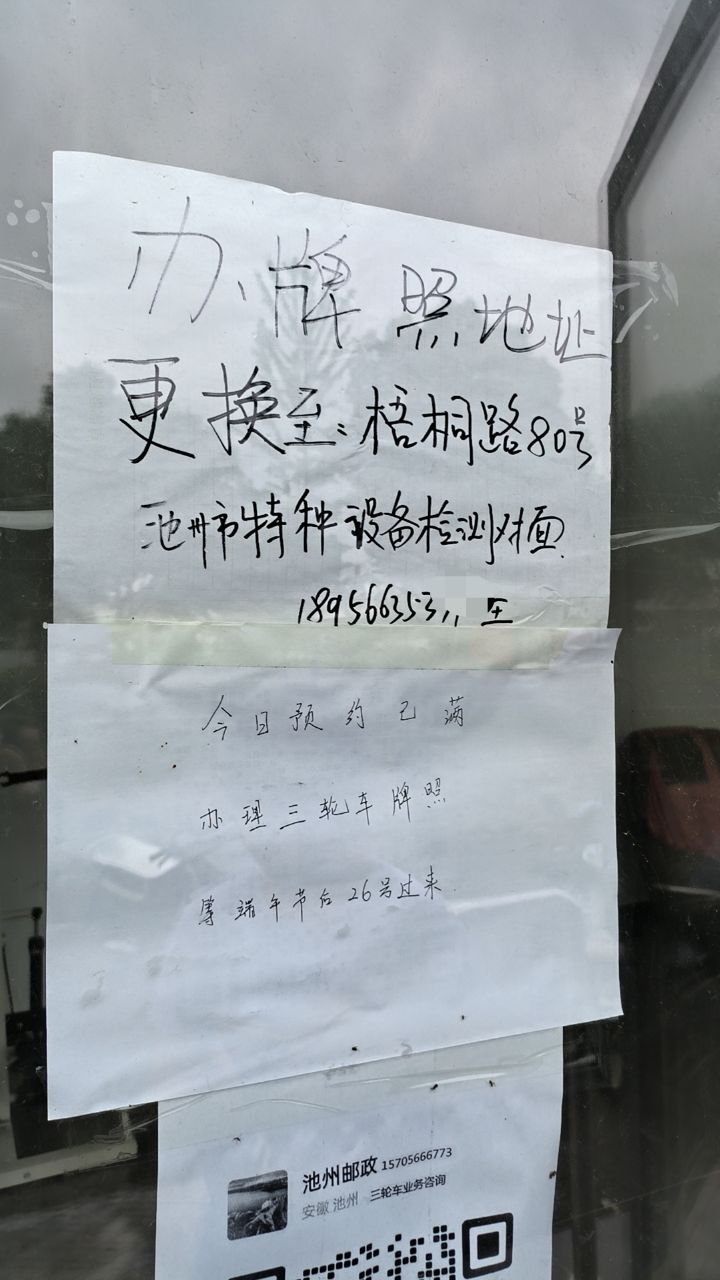 办牌照地址
更换至:梧桐路80号
池州市特种设备检测对面
189566353
今日预约已满
办理三轮车牌照
等端午节后26号过来
池州邮政 15705666773
安徽 池州 三轮车业务咨询